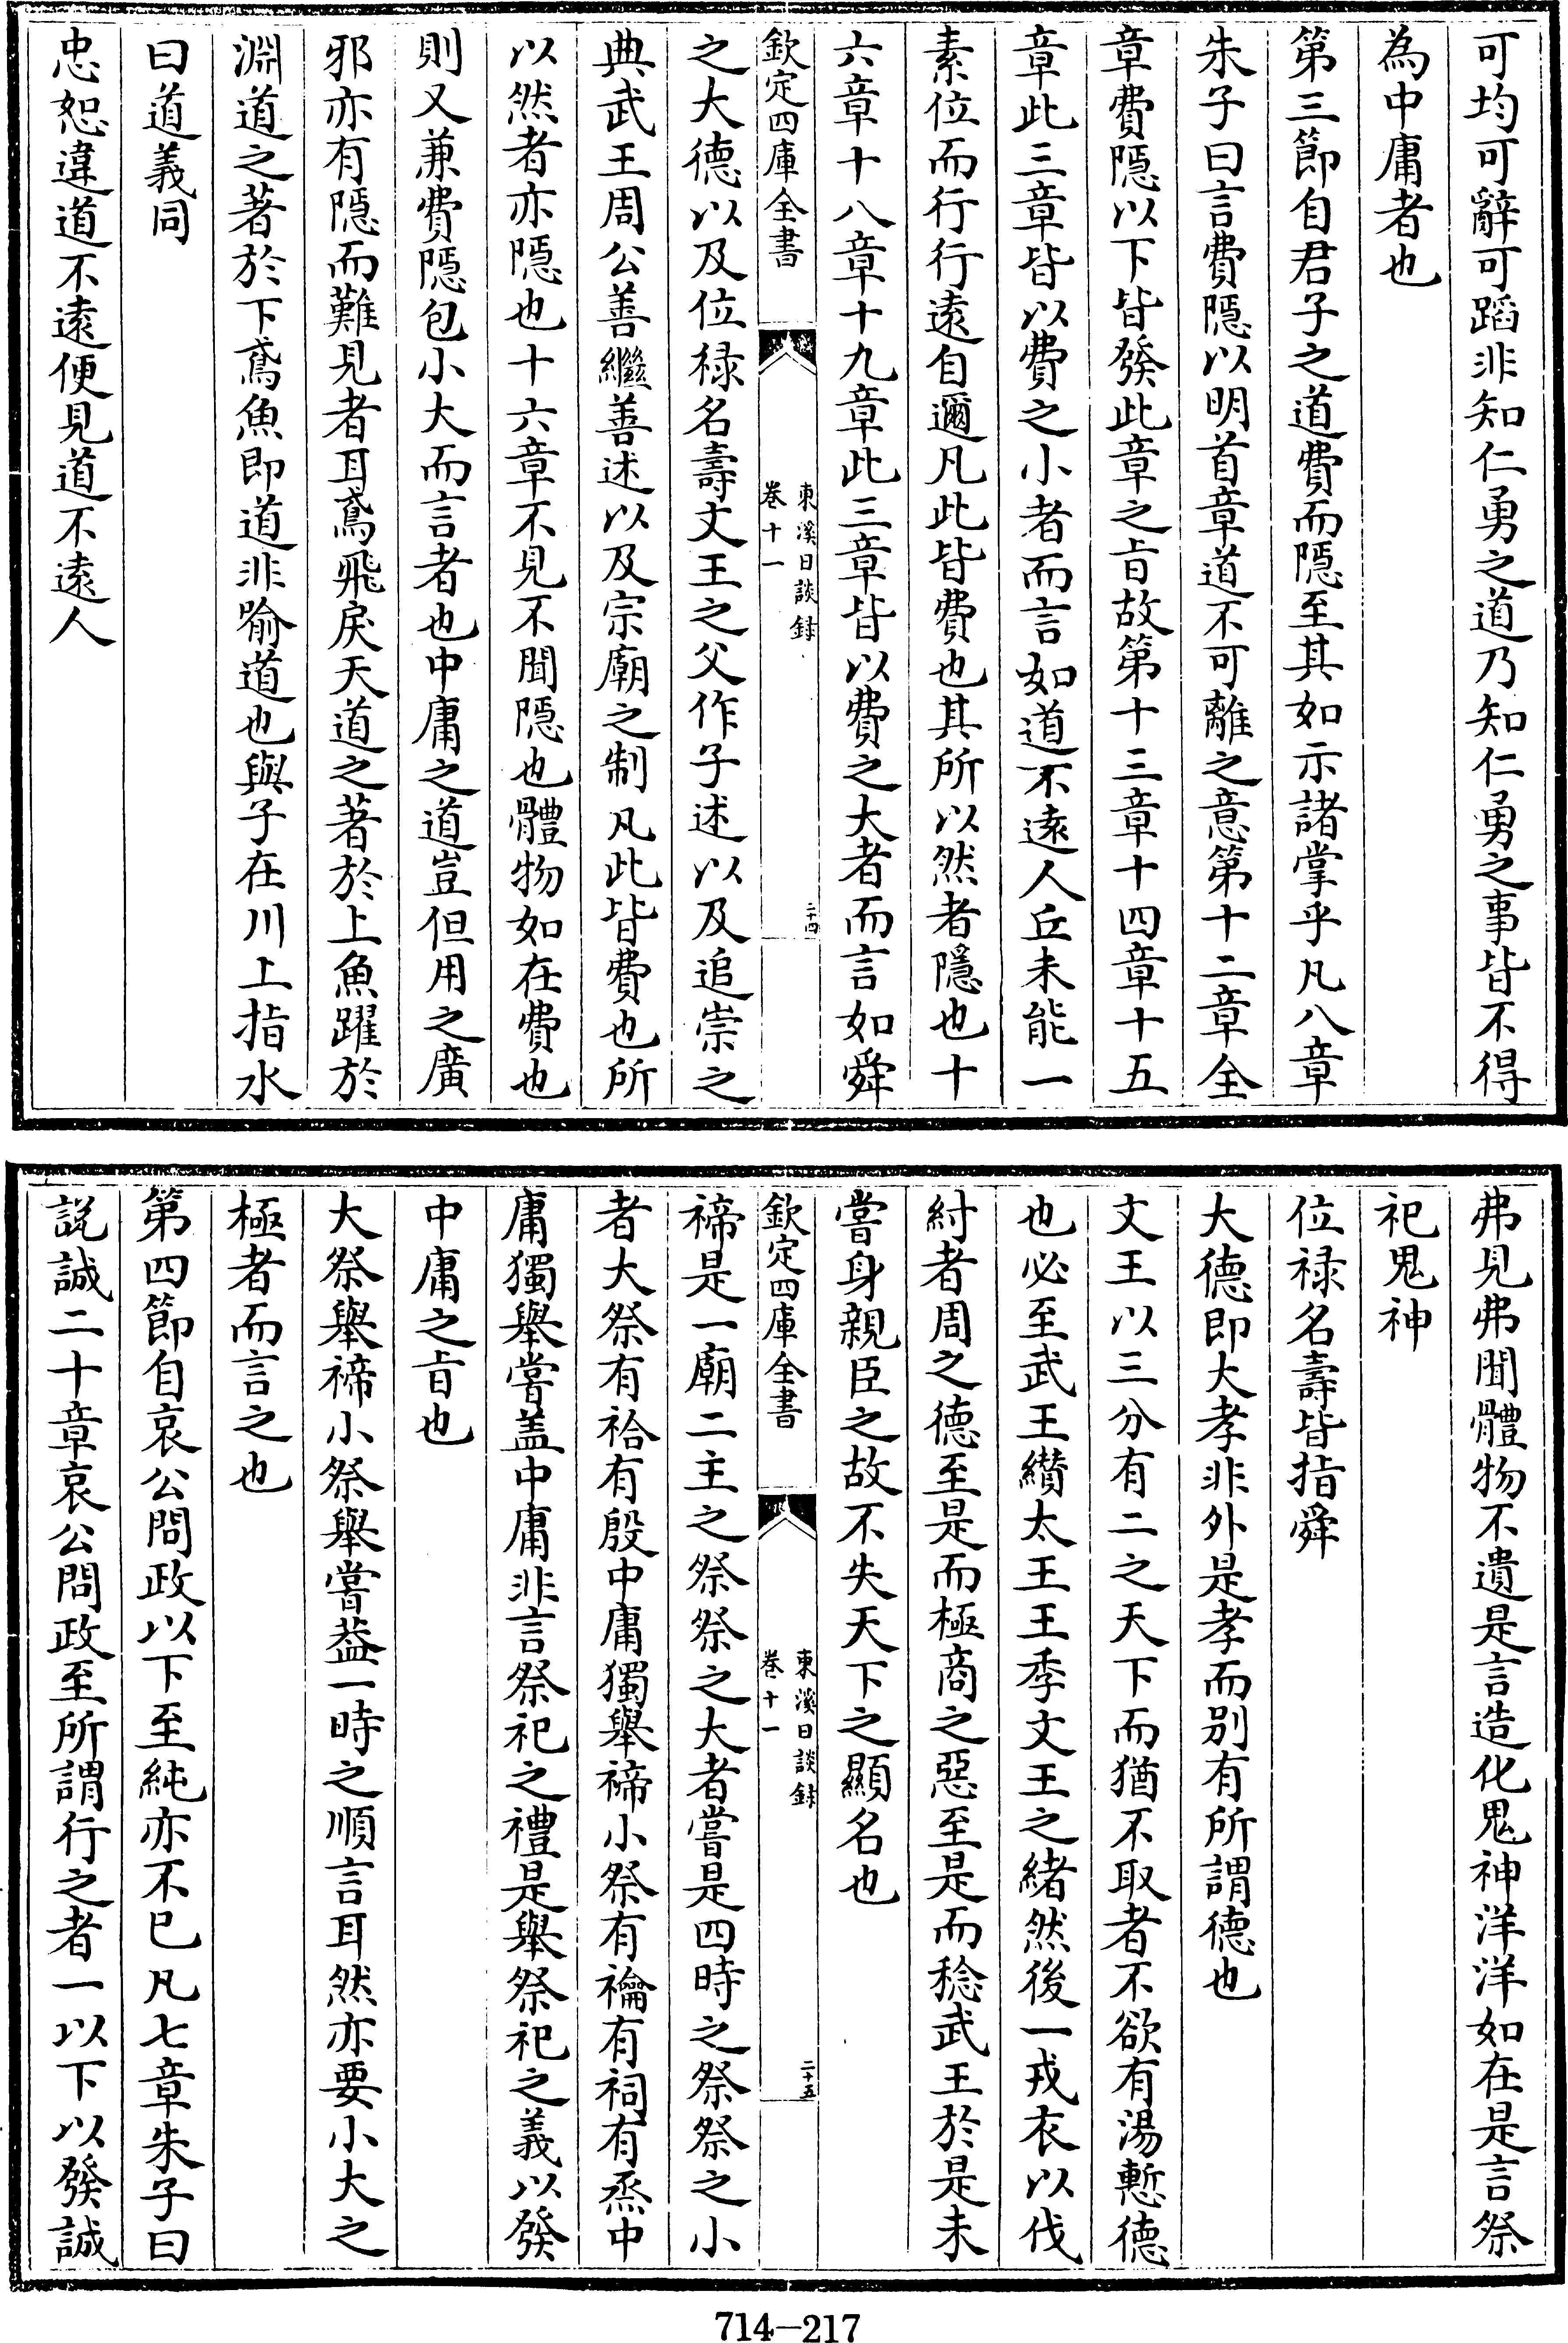 可均可辭可蹈非知仁勇之道乃知仁勇之事皆不得
為中庸者也
第三節自君子之道費而隱至其如示諸掌乎凡八章
朱子曰言費隱以明首章道不可離之意第十二章全
章費隱以下皆發此章之㫖故第十三章十四章十五
章此三章皆以費之小者而言如道不逺人丘未能一
素位而行行逺自邇凡此皆費也其所以然者隱也十
六章十八章十九章此三章皆以費之大者而言如舜
欽定四庫全書
東溪日談録
卷十一
二十四
之大德以及位禄名壽文王之父作子述以及追崇之
典武王周公善繼善述以及宗廟之制凡此皆費也所
以然者亦隱也十六章不見不聞隱也體物如在費也
則又兼費隱包小大而言者也中庸之道豈但用之廣
邪亦有隱而難見者耳鳶飛戾天道之著於上魚躍於
淵道之著於下鳶魚即道非喻道也與子在川上指水
曰道義同
忠恕違道不逺便見道不逺人
弗見弗聞體物不遺是言造化鬼神洋洋如在是言祭
祀鬼神
位禄名壽皆指舜
大德即大孝非外是孝而别有所謂德也
文王以三分有二之天下而猶不取者不欲有湯慙德
也必至武王纘太王王季文王之緒然後一戎衣以伐
紂者周之德至是而極商之惡至是而稔武王於是未
嘗身親臣之故不失天下之顯名也
欽定四庫全書
東溪日談録
卷十一
二十五
禘是一廟二主之祭祭之大者嘗是四時之祭祭之小
者大祭有祫有殷中庸獨舉禘小祭有禴有祠有烝中
庸獨舉嘗盖中庸非言祭祀之禮是舉祭祀之義以發
中庸之㫖也
大祭舉禘小祭舉嘗葢一時之順言耳然亦要小大之
極者而言之也
第四節自哀公問政以下至純亦不已凡七章朱子曰
説誠二十章哀公問政至所謂行之者一以下以發誠
714-217